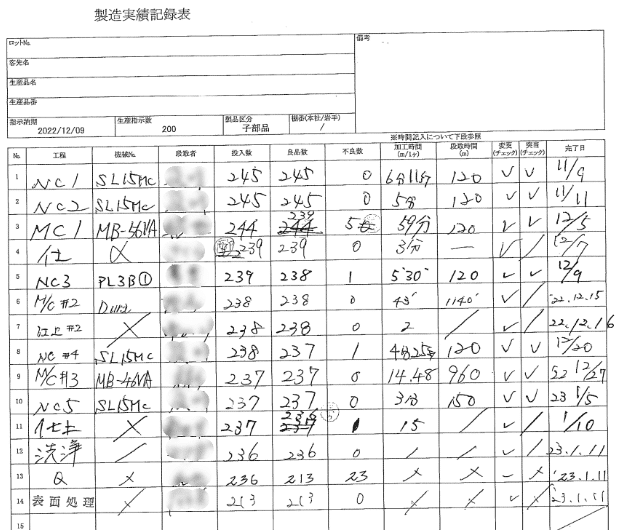 製造実績記録表
ロットNo.
備考
客先名
生産品名
生産品番
指示納期 生産指示数 製品区分 棚番(本社/岩平)
2022/12/09 200 子部品 /
※時間記入について下段参照
No. 工程 機械No. 段取者 投入数 良品数 不良数 加工時間(m/1ヶ) 段取時間(m) 変更(チェック) 完了日
1 NC1 SL15MC 245 245 0 6分11秒 120 ✓ ✓ 11/9
2 NC2 SL15MC 245 245 0 5分 120 ✓ ✓ 11/11
3 MC1 MB-46VA 244 239 5 59分 120 ✓ ✓ 12/5
4 仕 239 239 0 3分 — ✓ / 12/7
5 NC3 PL3B① 239 238 1 5'30" 120 ✓ ✓ 12/9
6 M/C #2 238 238 0 1140 ✓ / 22.12.15
7 #2 × 238 238 0 2 / ✓ / 22.12.16
8 NC #4 SL15MC 238 237 1 4分25秒 120 ✓ ✓ 12/20
9 M/C #3 MB-46VA 237 237 0 14.48 960 ✓ ✓ 12/27
10 NC5 SL15MC 237 237 0 3分 150 ✓ ✓ 23 1/5
11 仕上 × 237 1 15 / ✓ / 1/10
12 洗浄 / 236 236 0 / / ✓ / 23.1.11
13 Q × 236 213 23 × × – × '23.1.11
14 表面処理 / 213 213 0 × × ✓ × '23.1.11
15